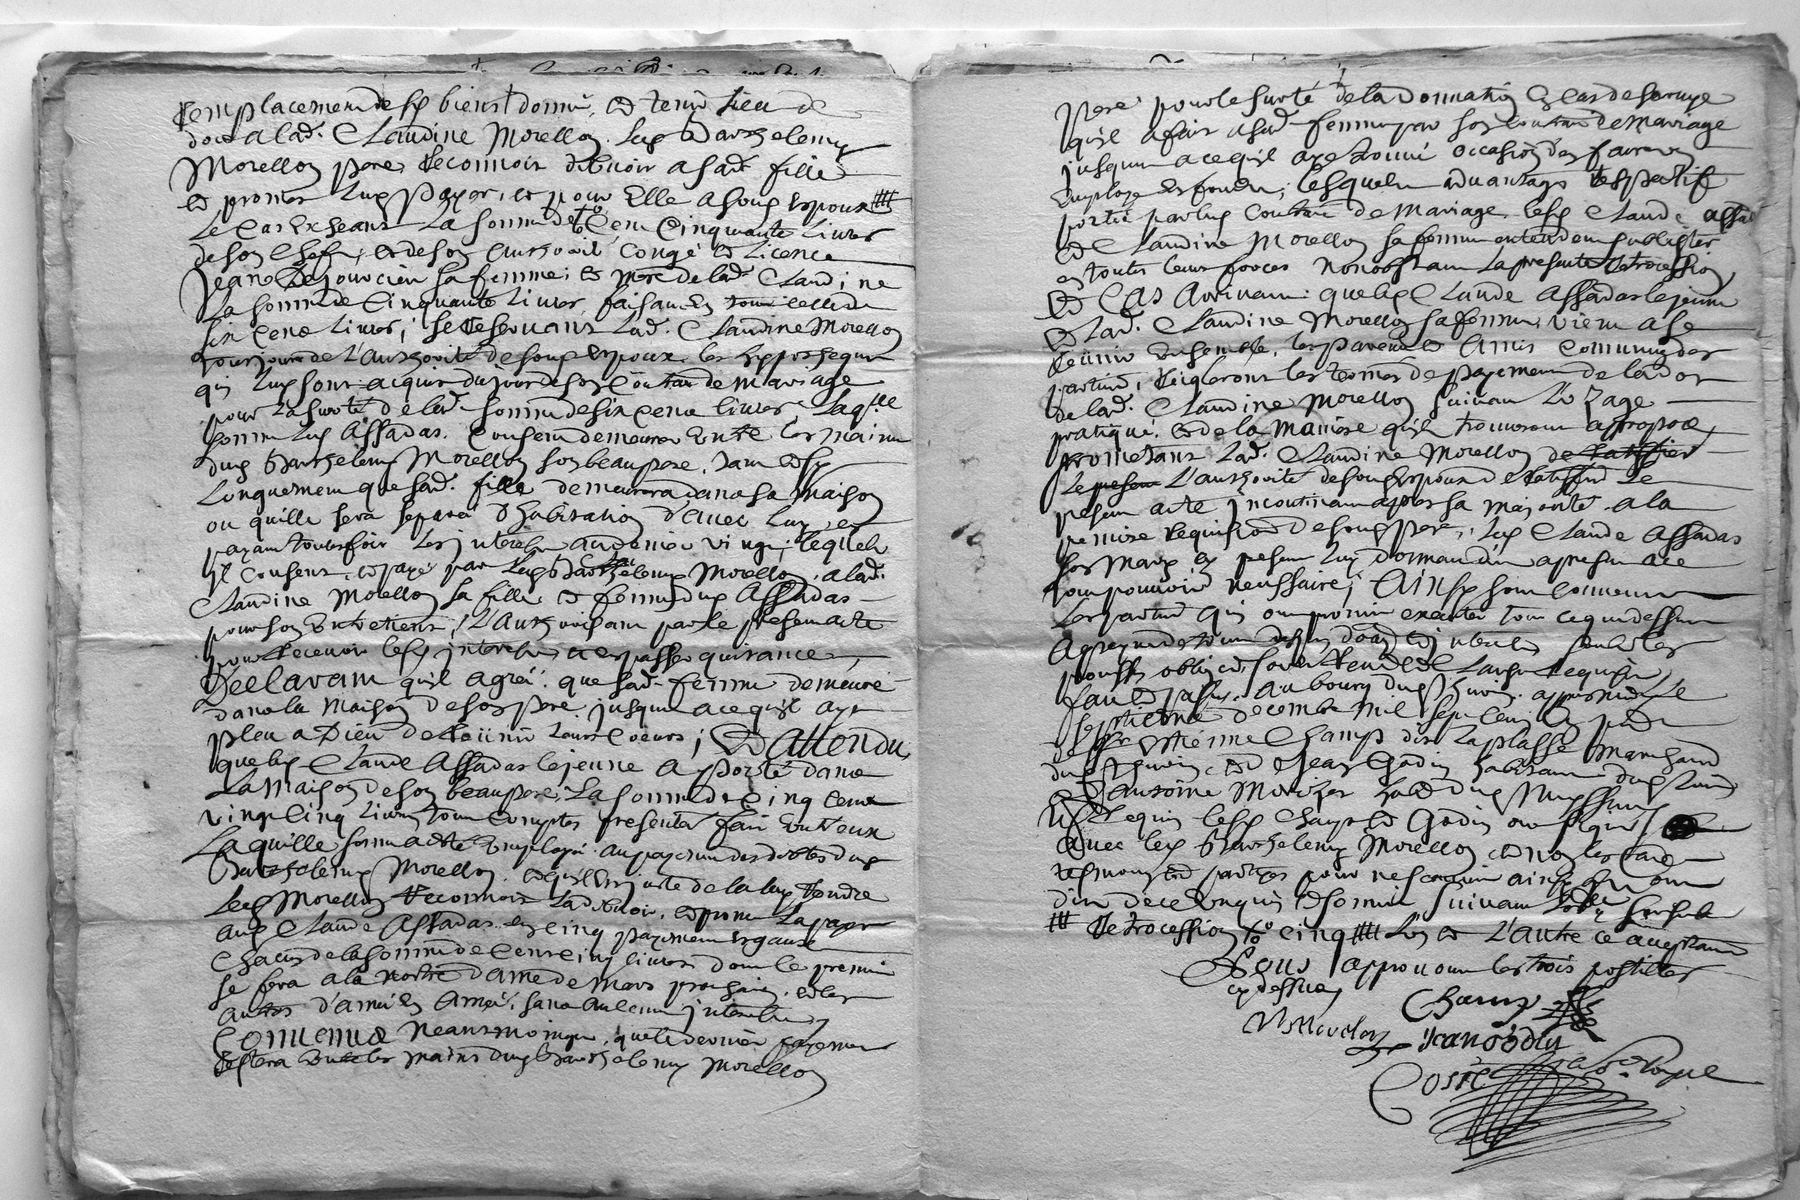 remplacement de ses biens donné, et tenir lieu de
dot a lad. Claudine Morellon. Led Barthelemy
Morellon pere reconnoit debvoir a sad. fille
et promet luy payer, et pour elle a song espoux
le cas exheant la somme de cent cinquante livres
de son chef, et de son authorité congé et licence
Jeane Dejoux cien sa femme, et mere de lad. Claudine
la somme de cinquante livres, faisant en tout celle de
six cent livres; se reservant lad. Claudine Morellon
toujours de l'authorité de song espoux les hyppotheques
qui luy sont acquis du jour de son contrat de mariage
pour la surté de lad. somme de six cent livres, laqlle
somme led Assadas consent demeurer entre les mains
dud Barthelemy Morellon son beaupere, tant et sy
longuement que sad. fille demeurera dans sa maison
ou quelle sera separée d'habitation d'avec luy, en
payant toutesfois les interests au denier vingt, lesquels
il consent, et payé par led Barthelemy Morellon, a lad.
Claudine Morellon sa fille et femme dud Assadas
pour son entretient, l'authorisant par le present acte
pour recevoir lesd interests et en passer quittance,
Declarant qu'il agrée que sad. femme demeure
dans la maison de son pere jusques a ce qu'il aye
pleu a Dieu de reünir leurs coeurs; Et Attendu
que led Claude Assadas le jeune a porté dans
la maison de son beaupere, la somme de cinq cent
vingt cinq livres tout compte presenté fait entr'eux
laquelle somme a esté employée au payement des debtes dud
Barthelemy Morellon, et qu'il est juste de la luy rendre
led Morellon reconnoit la debvoir, et promet la payer
aud Claude Assadas en cinq payements egaux
chacun de la somme de cent cinq livres dont le premier
se fera a la nostre dame de mars prochain, et les
autres d'année en année, sans aucun interests,
Convenus neantmoings, que le dernier payement
restera entre les mains dud Barthelemy Morellon
pere pour le surté de la donnation en cas de survye
qu'il a fait a sad. femme par son contrat de mariage
jusques a ce qu'il aye trouvé occasion d'en faire
employe en fonds; lesquels advantages respectifs
porté par led contrat de mariage lesd Claude Assadas
et Claudine Morellon sa femme entendent subsister
en toutes leurs forces nonobstant la presente retrocession
Et Cas Arrivant que led Claude Assadas le jeune
et lad. Claudine Morellon sa femme, vient a se
reünir ensemble, les parents et Amis communs des
parties, reigleront les termes de payement de la dot
de lad. Claudine Morellon suivant l'uzage
pratiqué, et de la maniere qu'ils trouveront appropos,
promettant lad. Claudine Morellon de ratiffier
le present L'authorité de song espoux de ratiffier le
present acte incontinant apres sa majorité a la
premiere requisition de song pere, led Claude Assadas
son mary icy present luy donnant dès a present a ce
tout pouvoir necessaire; Ainsy sont convenu
les parties qui ont promis executer tout ce que dessus
a peyne de tous despens domages et interests soubs les
pour ce obligés, soumettant et clauses requises,
fait et passé, au bourg dud apres midy le
septieme decembre mil sept cent en presence
de Sr Estienne Champ dit Laplasse marchand
dud et Jean Godin habitant dud lieu
Antoine Morizes habt dud
requis lesd Champ et Godin ont signé
avec led Barthelemy Morellon, et non les autres
tesmoings et parties pour ne scavoir ainsy qu'ont
dit de ce enquis et sommé suivant l'ordce
retrocession cinq Les et L'autre ce acceptant
Nous approuvont les trois postilles
cy dessus,
Champ
Morellon
Jean Godin
Cosse no.re Royal